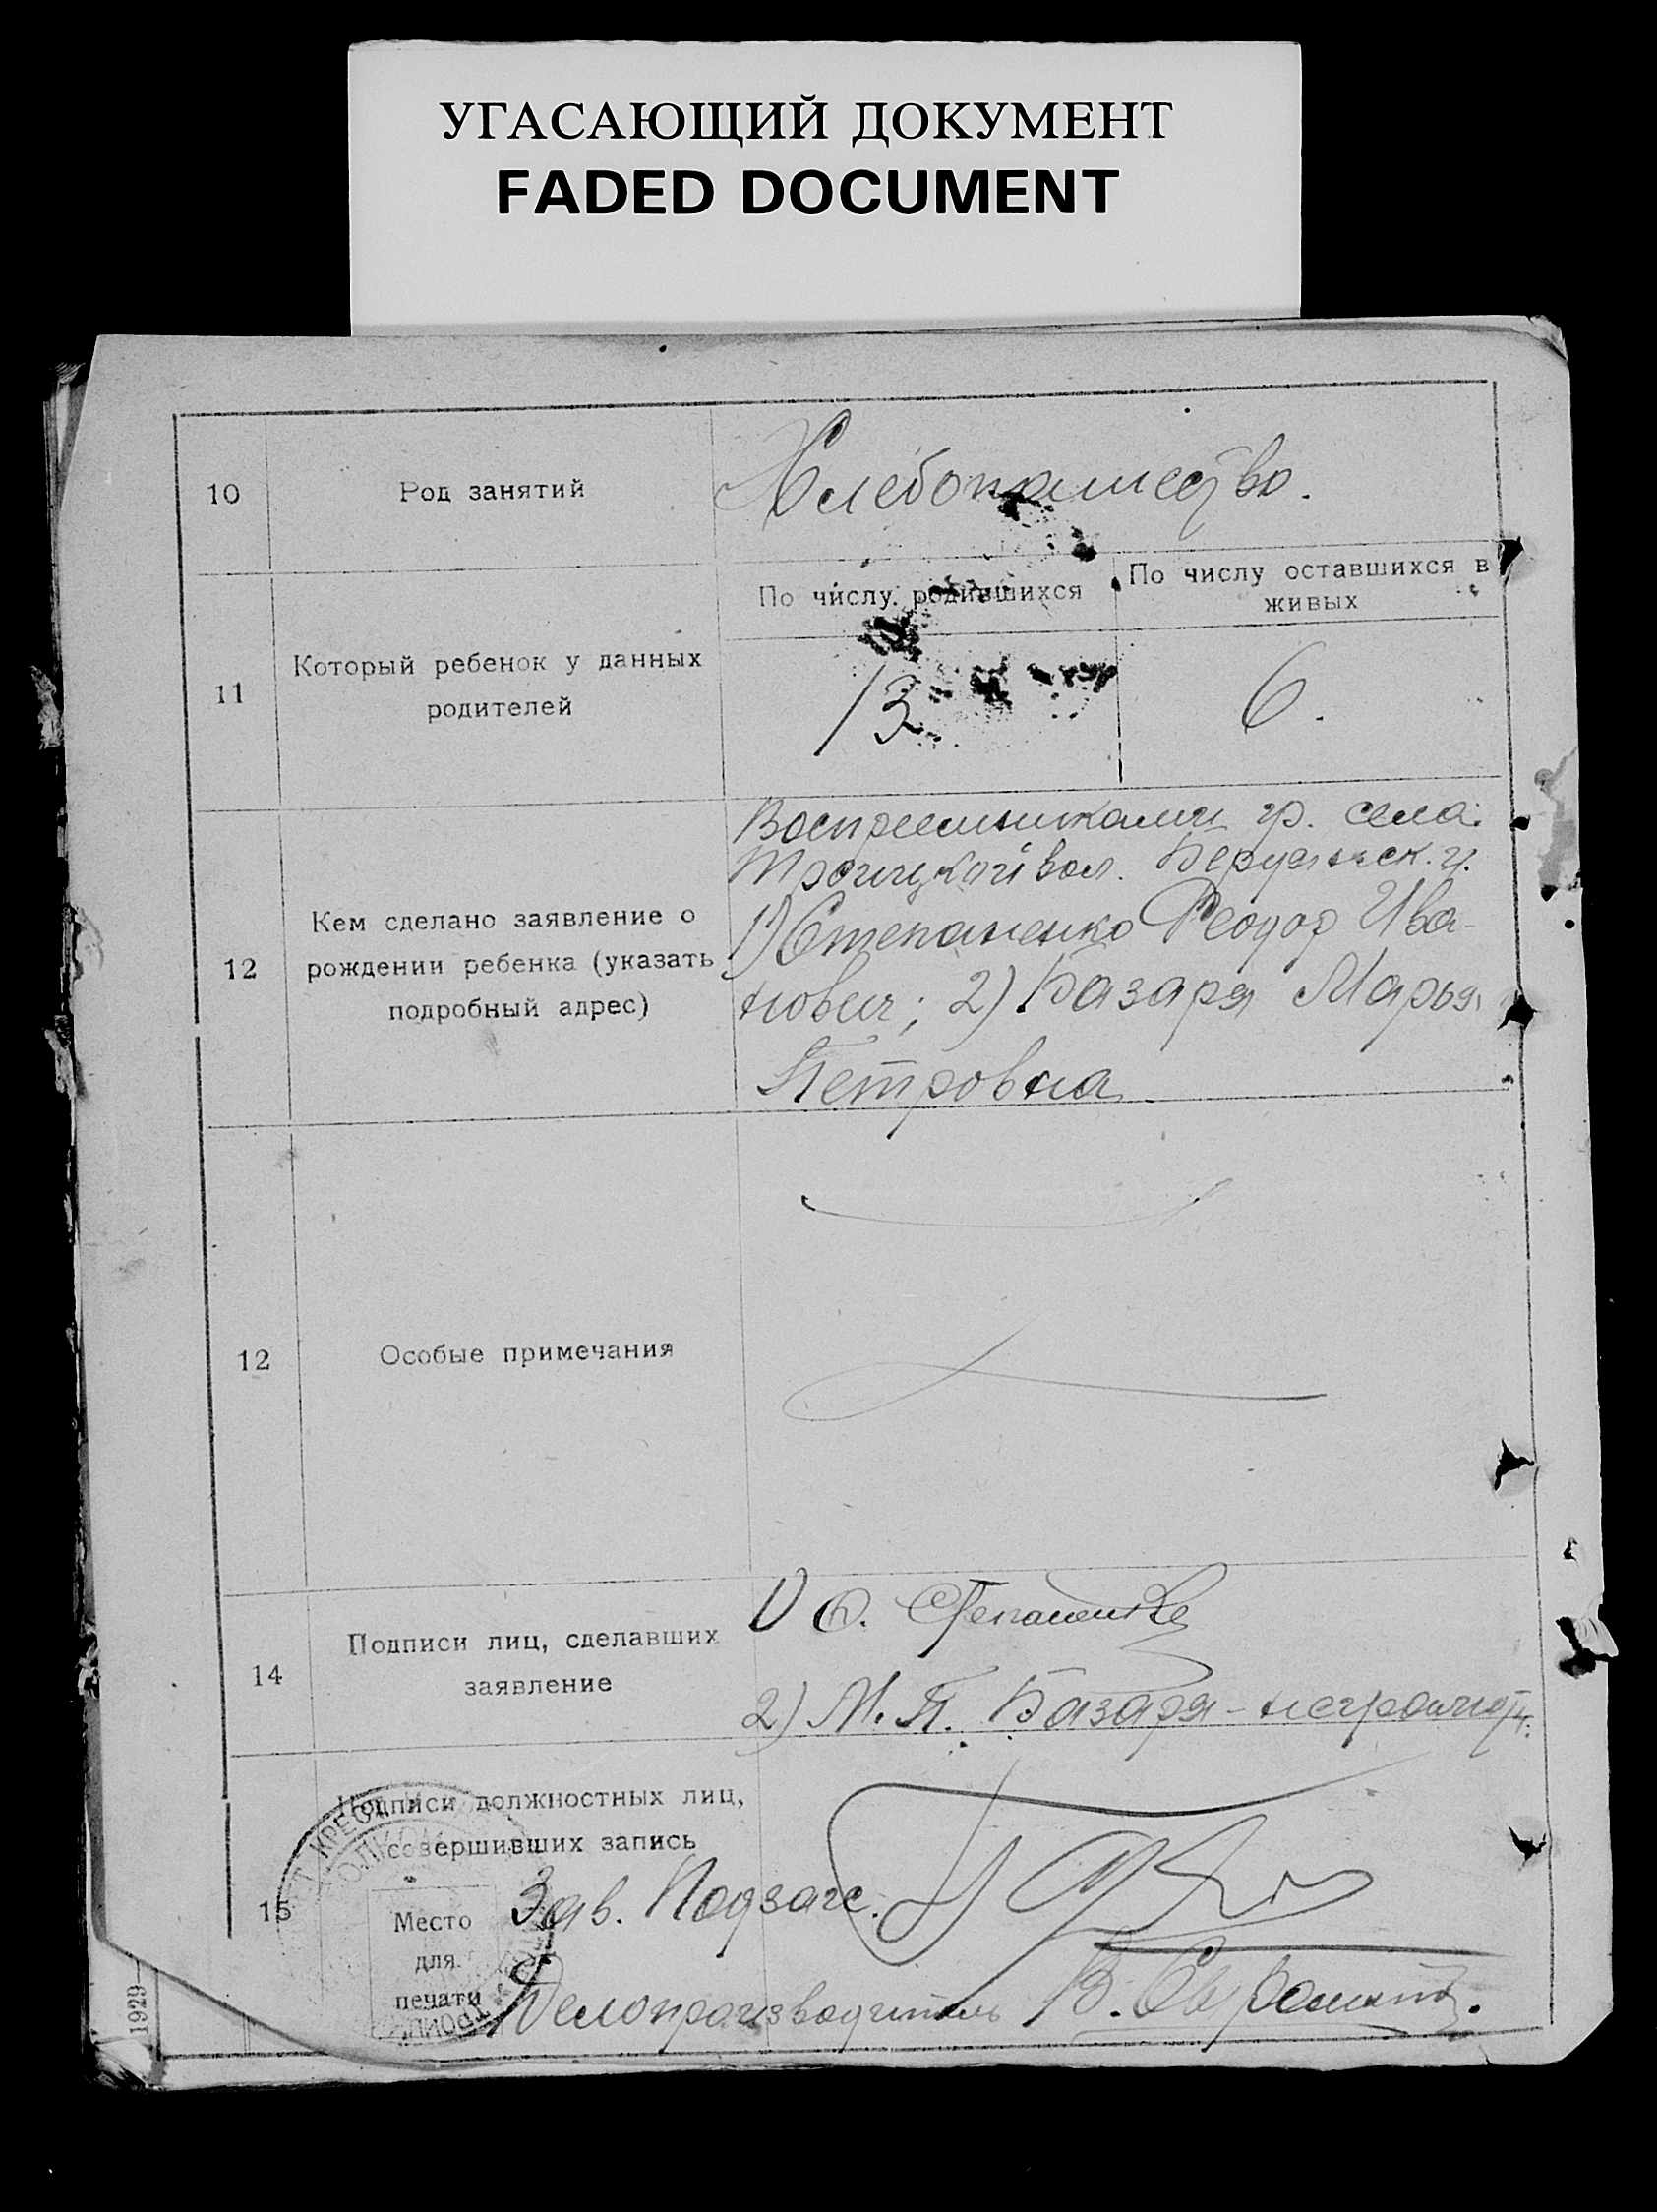 УГАСАЮЩИЙ ДОКУМЕНТ
FADED DOCUMENT
10
Род занятий
Хлебопашество.
11
Который ребенок у данных
родителей
По числу родившихся
По числу оставшихся в
живых
13
6.
12
Кем сделано заявление о
рождении ребенка (указать
подробный адрес)
Восприемниками гр. села
Троицкой вол. Бердянск. у.
1) Степаненко Феодор Ива-
нович; 2) Базаря Марья
Петровна
12
Особые примечания
14
Подписи лиц, сделавших
заявление
1) Ф. Степаненко
2) М. П. Базаря - неграмотн.
15
Подписи должностных лиц,
совершивших запись
Зав. Подзагс.
Место
для
печати
Делопроизводитель В.
1929